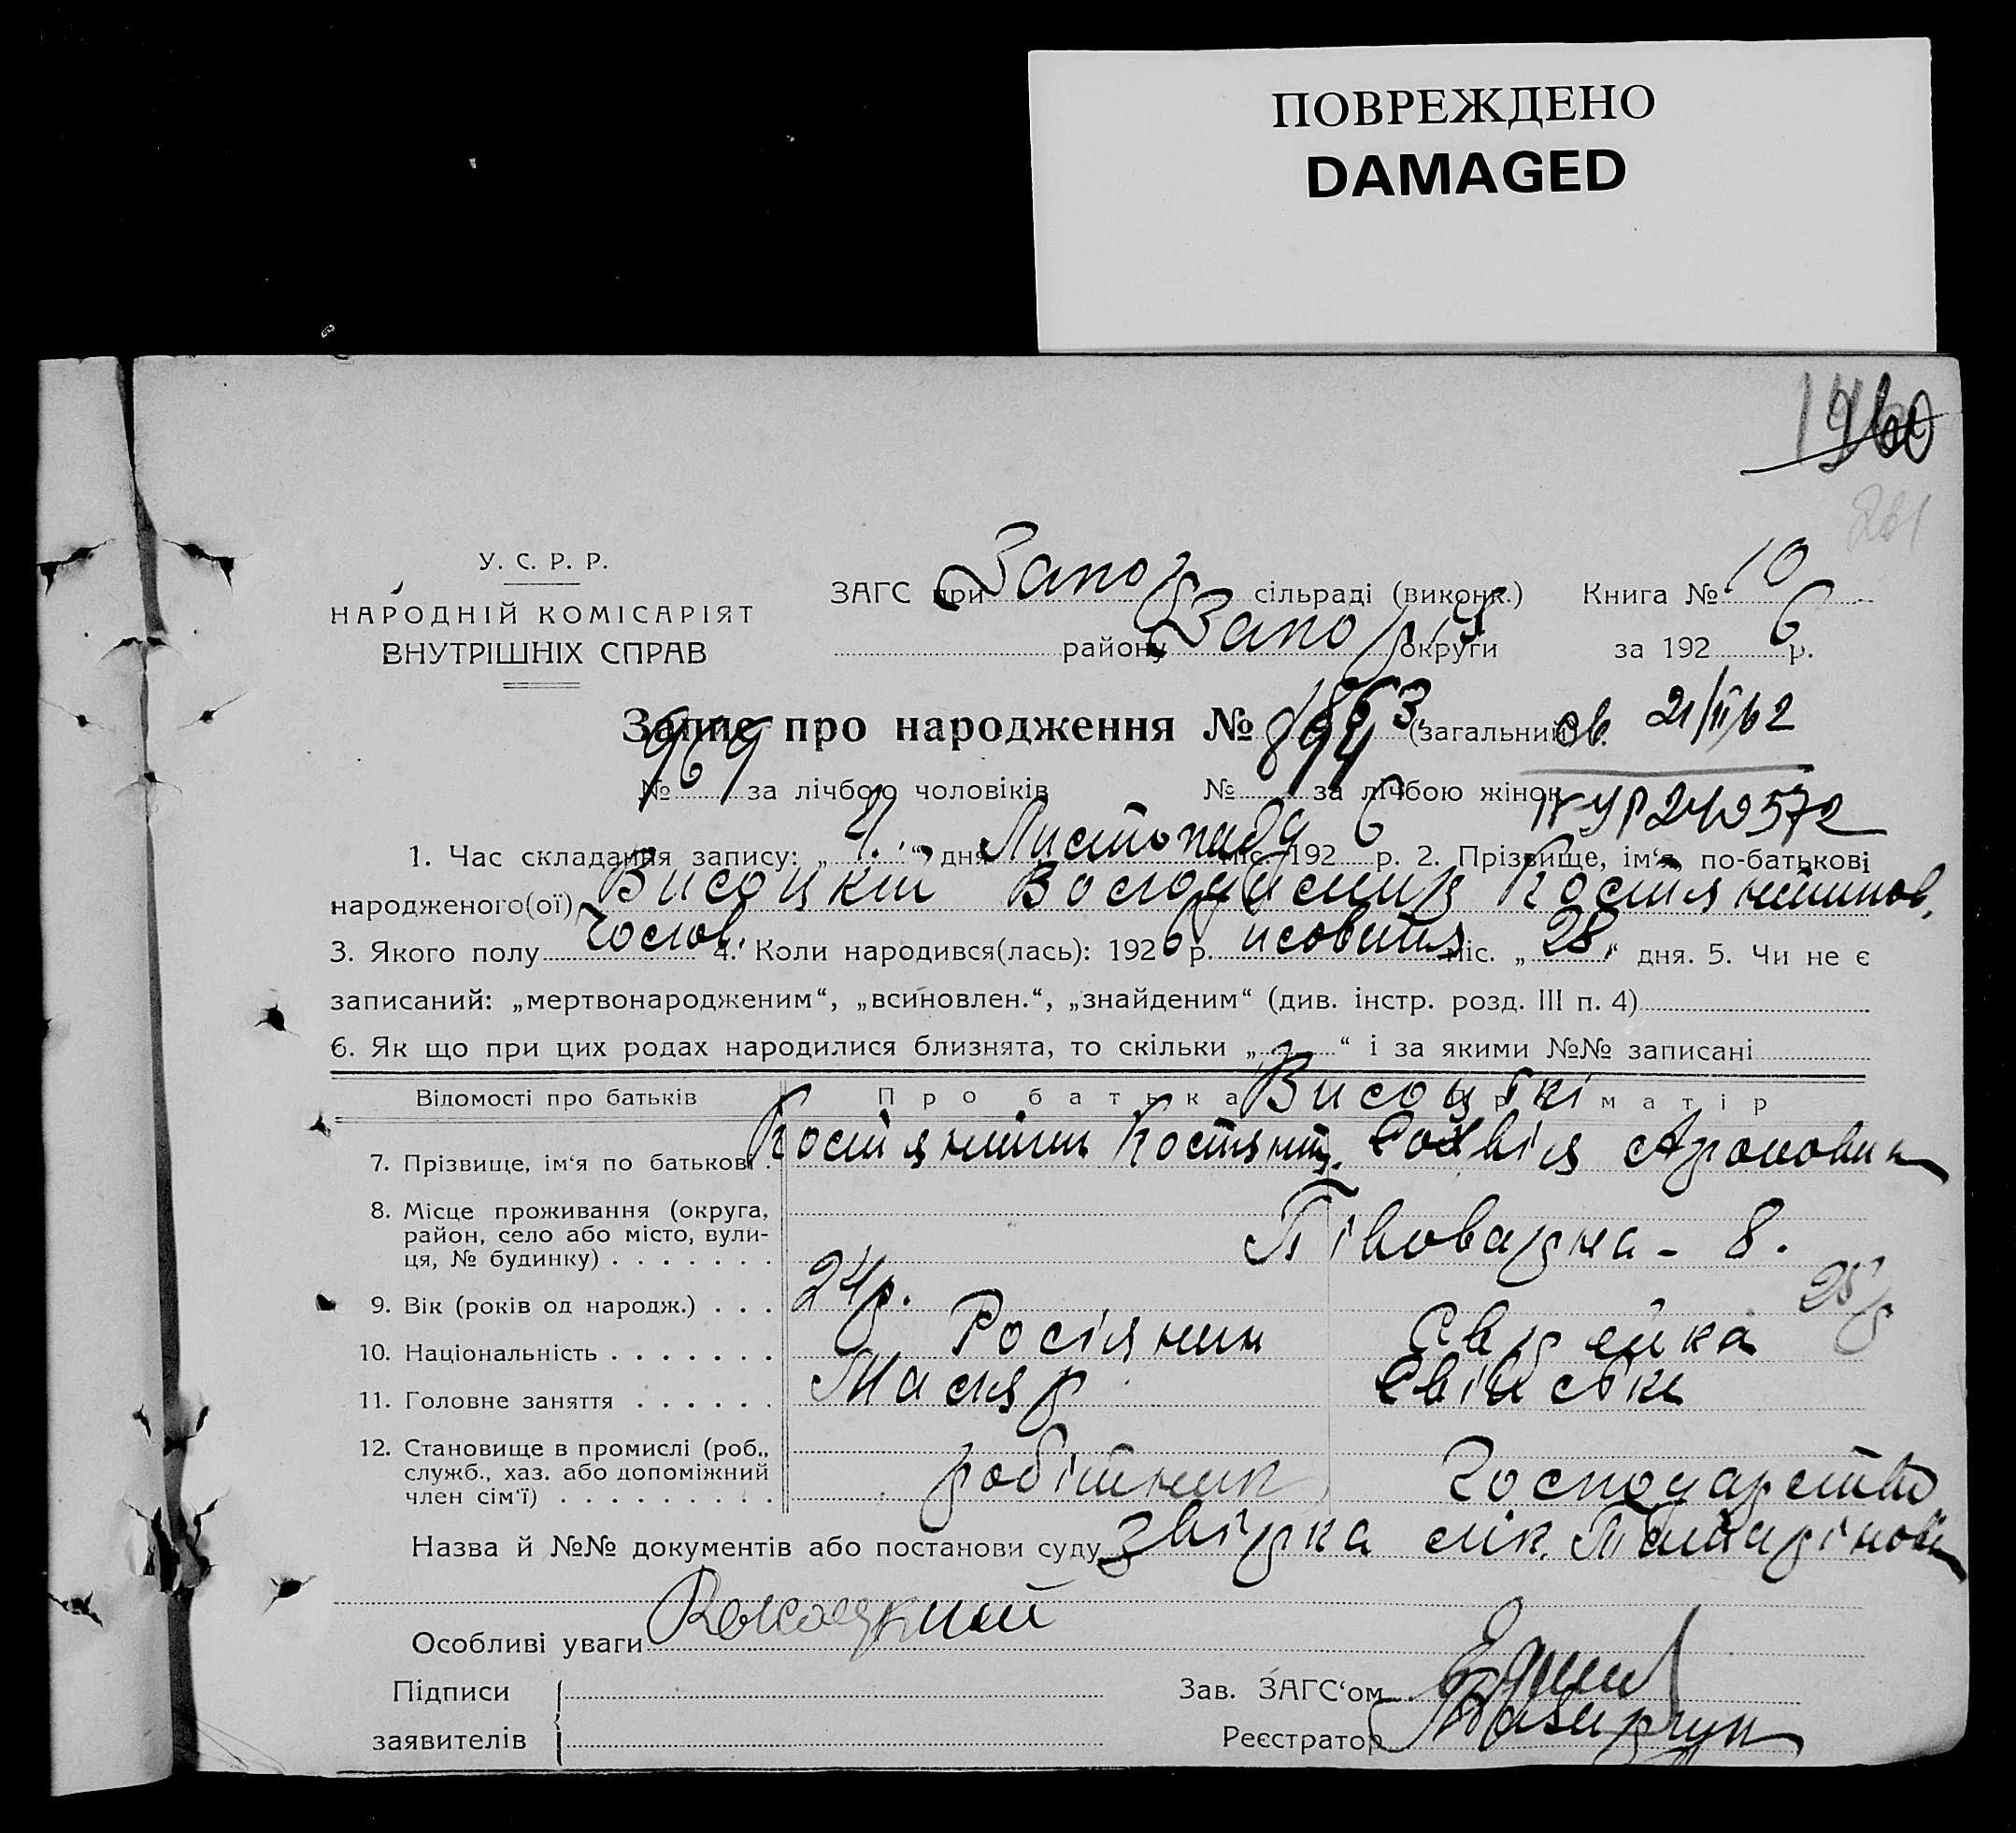 ПОВРЕЖДЕНО
DAMAGED
1960
261
У. С. Р. Р.
НАРОДНІЙ КОМІСАРІЯТ
ВНУТРІШНІХ СПРАВ
ЗАГС при Запор сільраді (виконк.) Книга № 10
району Запор округи за 1926 р.
Запис про народження № 1863 (загальний)
св. 21/II 62
№ 969 за лічбою чоловіків № 894 за лічбою жінок
1. Час складання запису: „4.“ дня Листопада міс. 1926 р. 2. Прізвище, ім‘я, по-батькові
народженого(ої) Висоцкий Володимир Костянтинов.
3. Якого полу чолов. 4. Коли народився(лась): 1926 р. жовтня міс. „28“ дня. 5. Чи не є
записаний: „мертвонародженим“, „всиновлен.“, „знайденим“ (див. інстр. розд. III п. 4)
6. Як що при цих родах народилися близнята, то скільки „ “ і за якими №№ записані
Відомості про батьків Про батька Про матір
Висоцькі
7. Прізвище, ім‘я по батькові Костянтин Костянт. Софія Ароновна
8. Місце проживання (округа,
район, село або місто, вули-
ця, № будинку) Півоварна - 8.
9. Вік (років од народж.) 24 р. 25 р
10. Національність Росіянин Єврейка
11. Головне заняття Маляр Хатнє
12. Становище в промислі (роб.,
служб., хаз. або допоміжний
член сім‘ї) робітник Господарство
Назва й №№ документів або постанови суду
Особливі уваги
Підписи
заявителів
Зав. ЗАГС‘ом
Реєстратор